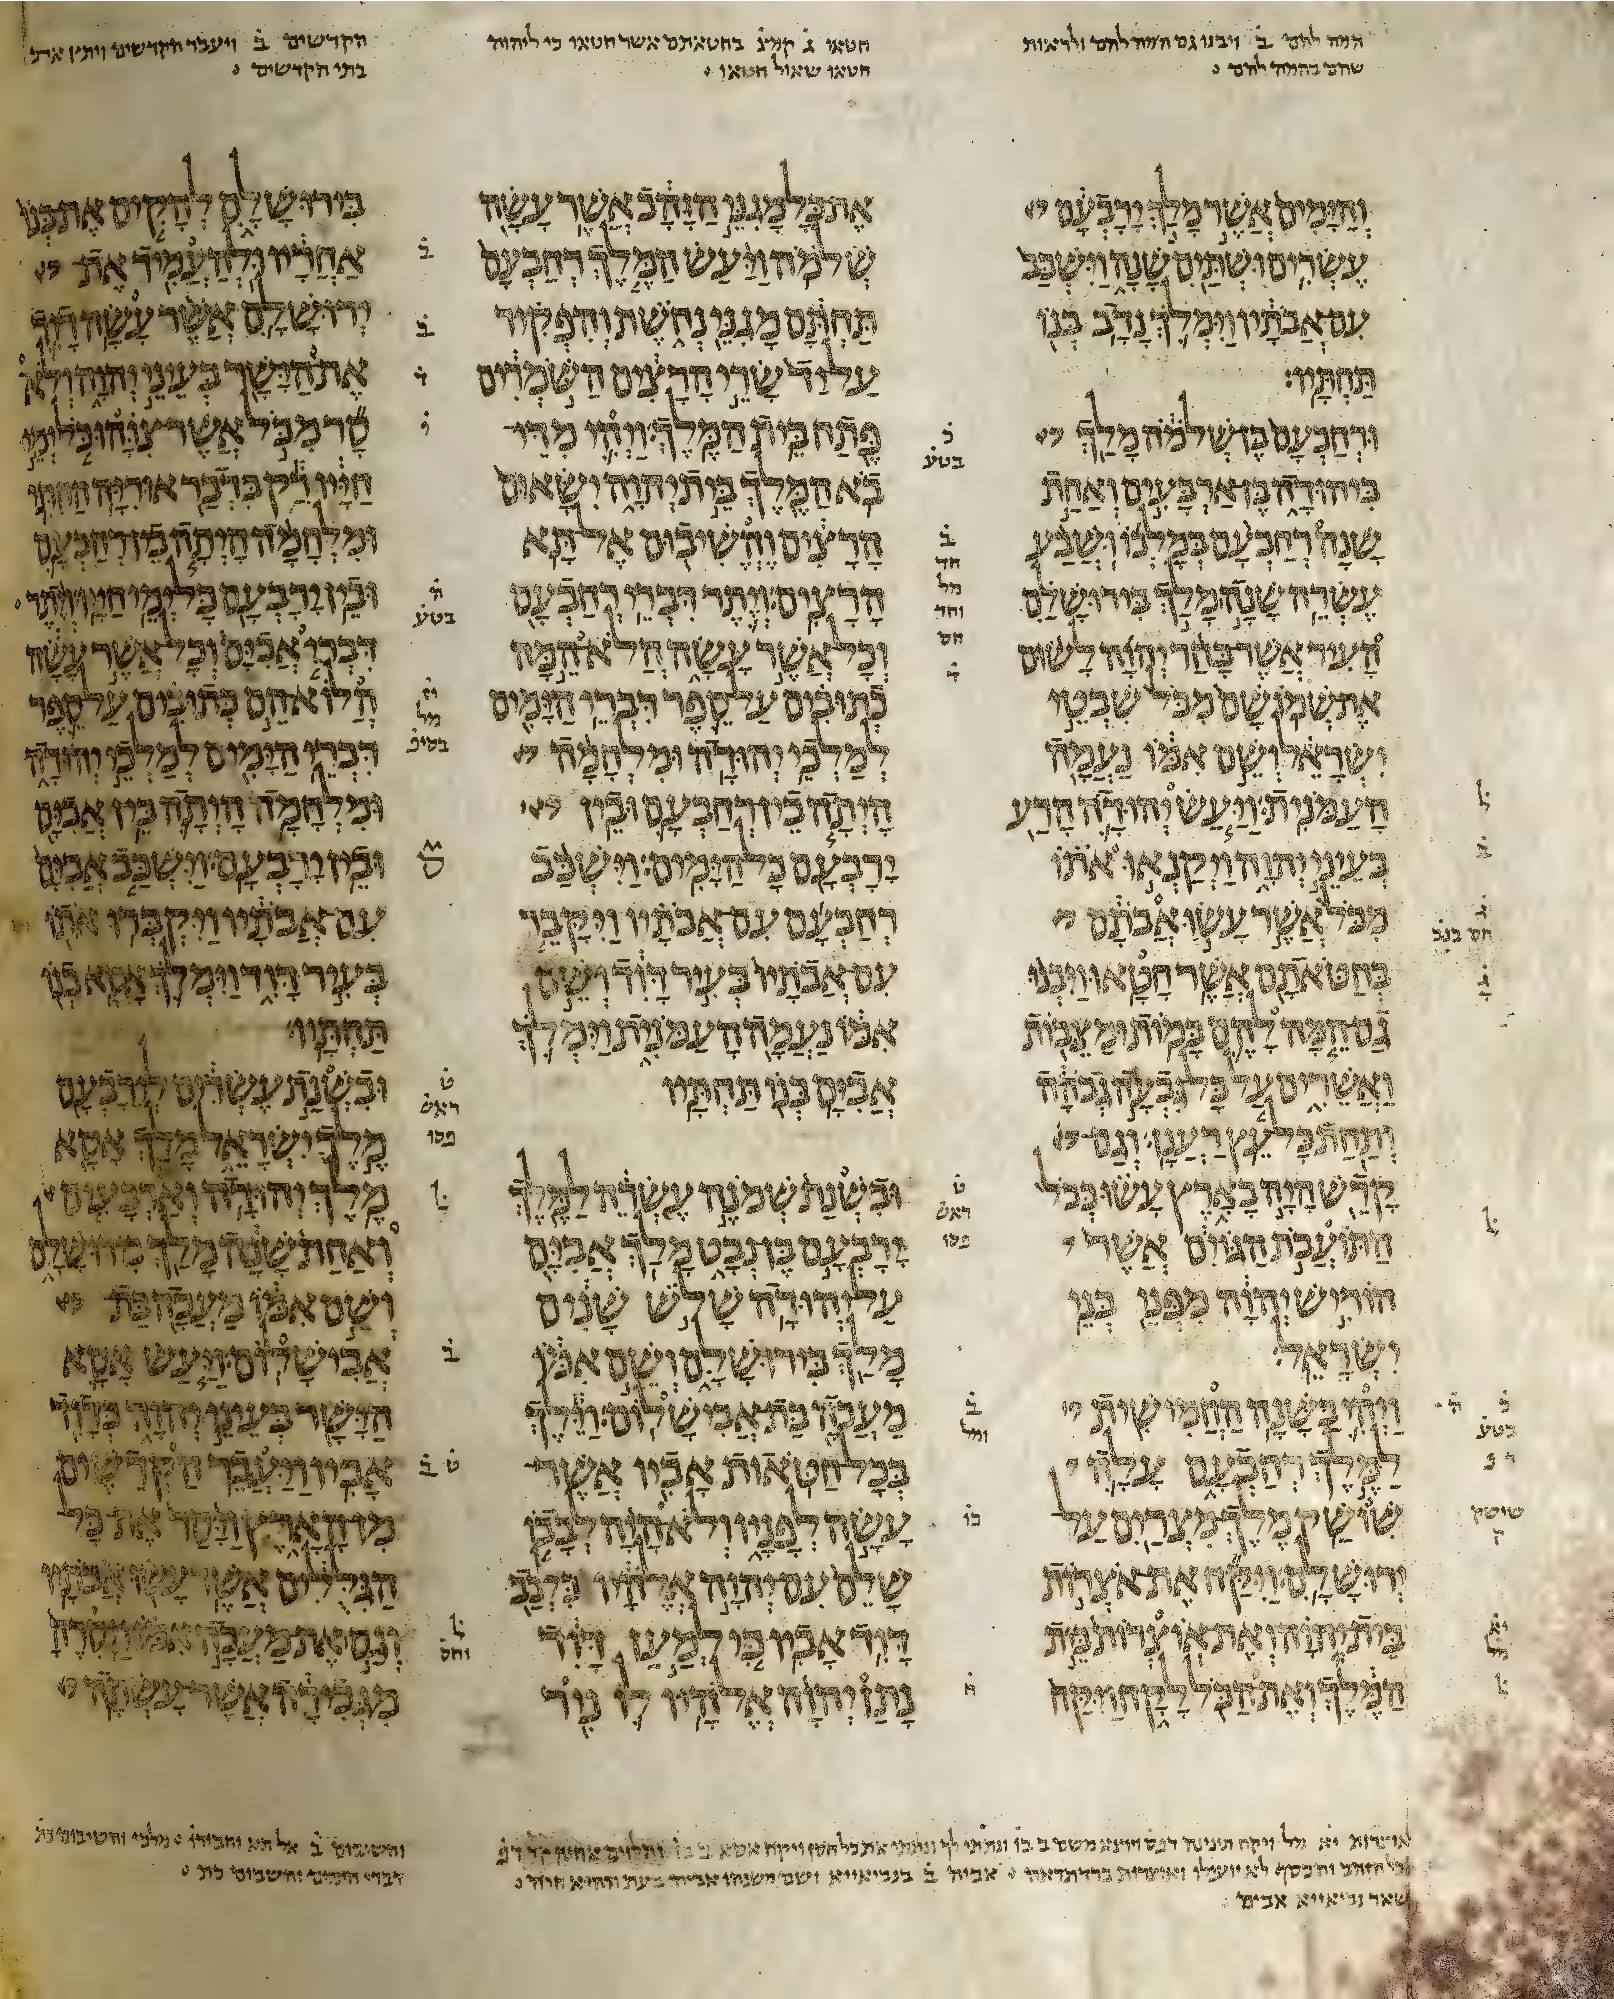 המה להם ב ויבנו גם המה להם ולראות
שהם בהמה להם
חטאו ג קמצ בחטאתם אשר חטאו כי ליהוה
חטאו שאול חטאו
הקדשים ב ויעבר הקדשים ויתץ את
בתי הקדשים
והימים אשר מלך ירבעם
עשרים ושתים שנה וישכב
עם אבתיו וימלך נדב בנו
תחתיו׃
ורחבעם בן שלמה מלך
ביהודה בן ארבעים ואחת
שנה רחבעם במלכו ושבע
עשרה שנה מלך בירושלם
העיר אשר בחר יהוה לשום
את שמו שם מכל שבטי
ישראל ושם אמו נעמה
העמנית׃ ויעש יהודה הרע
בעיני יהוה ויקנאו אתו
מכל אשר עשו אבתם
בחטאתם אשר חטאו׃ ויבנו
גם המה להם במות ומצבות
ואשרים על כל גבעה גבהה
ותחת כל עץ רענן׃ וגם
קדש היה בארץ עשו ככל
התועבת הגוים אשר
הוריש יהוה מפני בני
ישראל׃
ויהי בשנה החמישית
למלך רחבעם עלה
שושק מלך מצרים על
ירושלם׃ ויקח את אצרות
בית יהוה ואת אוצרות בית
המלך ואת הכל לקח ויקח
ל
ב
ג
חס בנב
ג
ל
ב
בטע
שישק
ק
יא
מל
ל
את כל מגני הזהב אשר עשה
שלמה׃ ויעש המלך רחבעם
תחתם מגני נחשת והפקיד
על יד שרי הרצים השמרים
פתח בית המלך׃ ויהי מדי
בא המלך בית יהוה ישאום
הרצים והשיבום אל תא
הרצים׃ ויתר דברי רחבעם
וכל אשר עשה הלא המה
כתובים על ספר דברי הימים
למלכי יהודה׃ ומלחמה
היתה בין רחבעם ובין
ירבעם כל הימים׃ וישכב
רחבעם עם אבתיו ויקבר
עם אבתיו בעיר דוד ושם
אמו נעמה העמנית וימלך
אבים בנו תחתיו
ובשנת שמנה עשרה למלך
ירבעם בן נבט מלך אבים
על יהודה׃ שלש שנים
מלך בירושלם ושם אמו
מעכה בת אבישלום׃ וילך
בכל חטאות אביו אשר
עשה לפניו ולא היה לבבו
שלם עם יהוה אלהיו כלבב
דוד אביו׃ כי למען דוד
נתן יהוה אלהיו לו ניר
ב
בטע
ב
חד
מל
וחד
חס
ד
ט
ראש
פסו
ב
ומל
כו
ח
בירושלם להקים את בנו
אחריו ולהעמיד את
ירושלם׃ אשר עשה דוד
את הישר בעיני יהוה ולא
סר מכל אשר צוהו כל ימי
חייו רק בדבר אוריה החתי׃
ומלחמה היתה בין רחבעם
ובין ירבעם כל ימי חייו׃ ויתר
דברי אבים וכל אשר עשה
הלוא הם כתובים על ספר
דברי הימים למלכי יהודה
ומלחמה היתה בין אבים
ובין ירבעם׃ וישכב אבים
עם אבתיו ויקברו אתו
בעיר דוד וימלך אסא בנו
תחתיו׃
ובשנת עשרים לירבעם
מלך ישראל מלך אסא
מלך יהודה׃ וארבעים
ואחת שנה מלך בירושלם
ושם אמו מעכה בת
אבישלום׃ ויעש אסא
הישר בעיני יהוה כדוד
אביו׃ ויעבר הקדשים
מן הארץ ויסר את כל
הגללים אשר עשו אבתיו׃
וגם את מעכה אמו ויסרה
מגבירה אשר עשתה
ב
ב
ד
י
ה
בטע
יז
מל
בסיפ
ט
ראש
פסו
ל
ב
ט ב
ל
וחס
אוצרות יא מל ויקח
אביה ב בנביאייא ושם משנהו אביה בעת ההיא חלה
שאר נביאייא אבים
והשיבום ב אל תא וחבירו מלכי והשיבום בת
דברי הימים והשבום בת